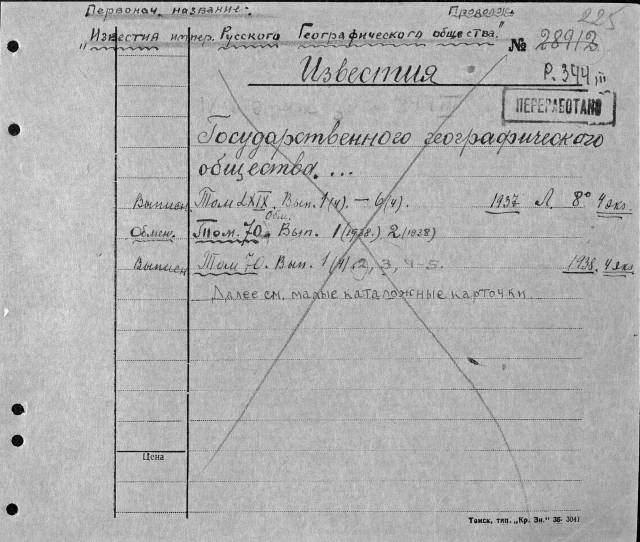 Первонач. название: Продолж. 225
"Известия импер. Русского Географического общества." № 289/2
Известия Р. 344, III
ПЕРЕРАБОТАНО
Государственного географического
общества. ...
Выписан Том LXIX. Вып. 1(4). — 6(4). 1937 Л. 8° 4 экз.
Обм.
Обмен. Том. 70. Вып. 1 (1938.) 2 (1938)
Выписан Том 70. Вып. 1 (4) 2, 3, 4-5. 1938. 4 экз
Далее см. малые каталожные карточки
Цена
Томск, тип. „Кр. Зн." 36- 3041